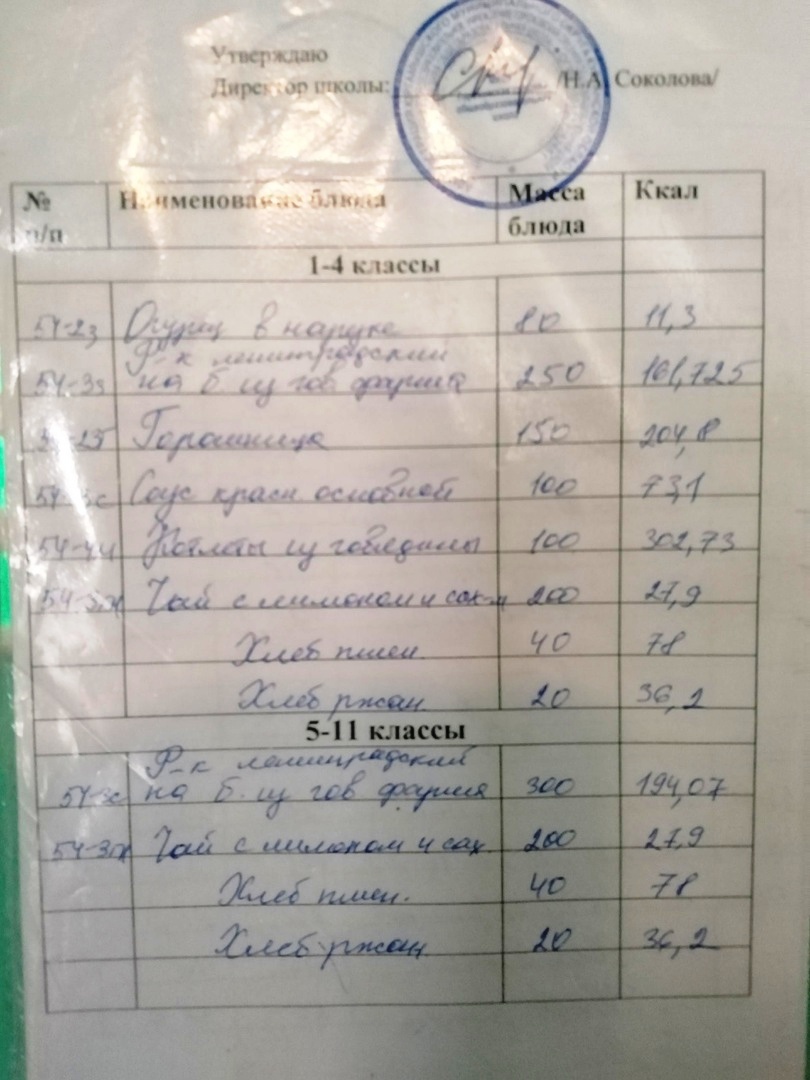 Утверждаю
Директор школы: /Н.А. Соколова/
№ п/п Наименование блюда Масса блюда Ккал
1-4 классы
54-2з Огурец в нарезке 80 11,3
Р-к ленинградский
54-3с на б. из гов фарша 250 161,725
Горошница 150 204,8
54-3с Соус красн. основной 100 73,1
54-4м Котлеты из говядины 100 302,73
Чай с лимоном и сах-м 200 27,9
Хлеб пшен. 40 78
Хлеб ржан. 20 36,2
5-11 классы
Р-к ленинградский
54-3с на б. из гов фарша 300 194,07
Чай с лимоном и сах. 200 27,9
Хлеб пшен. 40 78
Хлеб ржан. 20 36,2